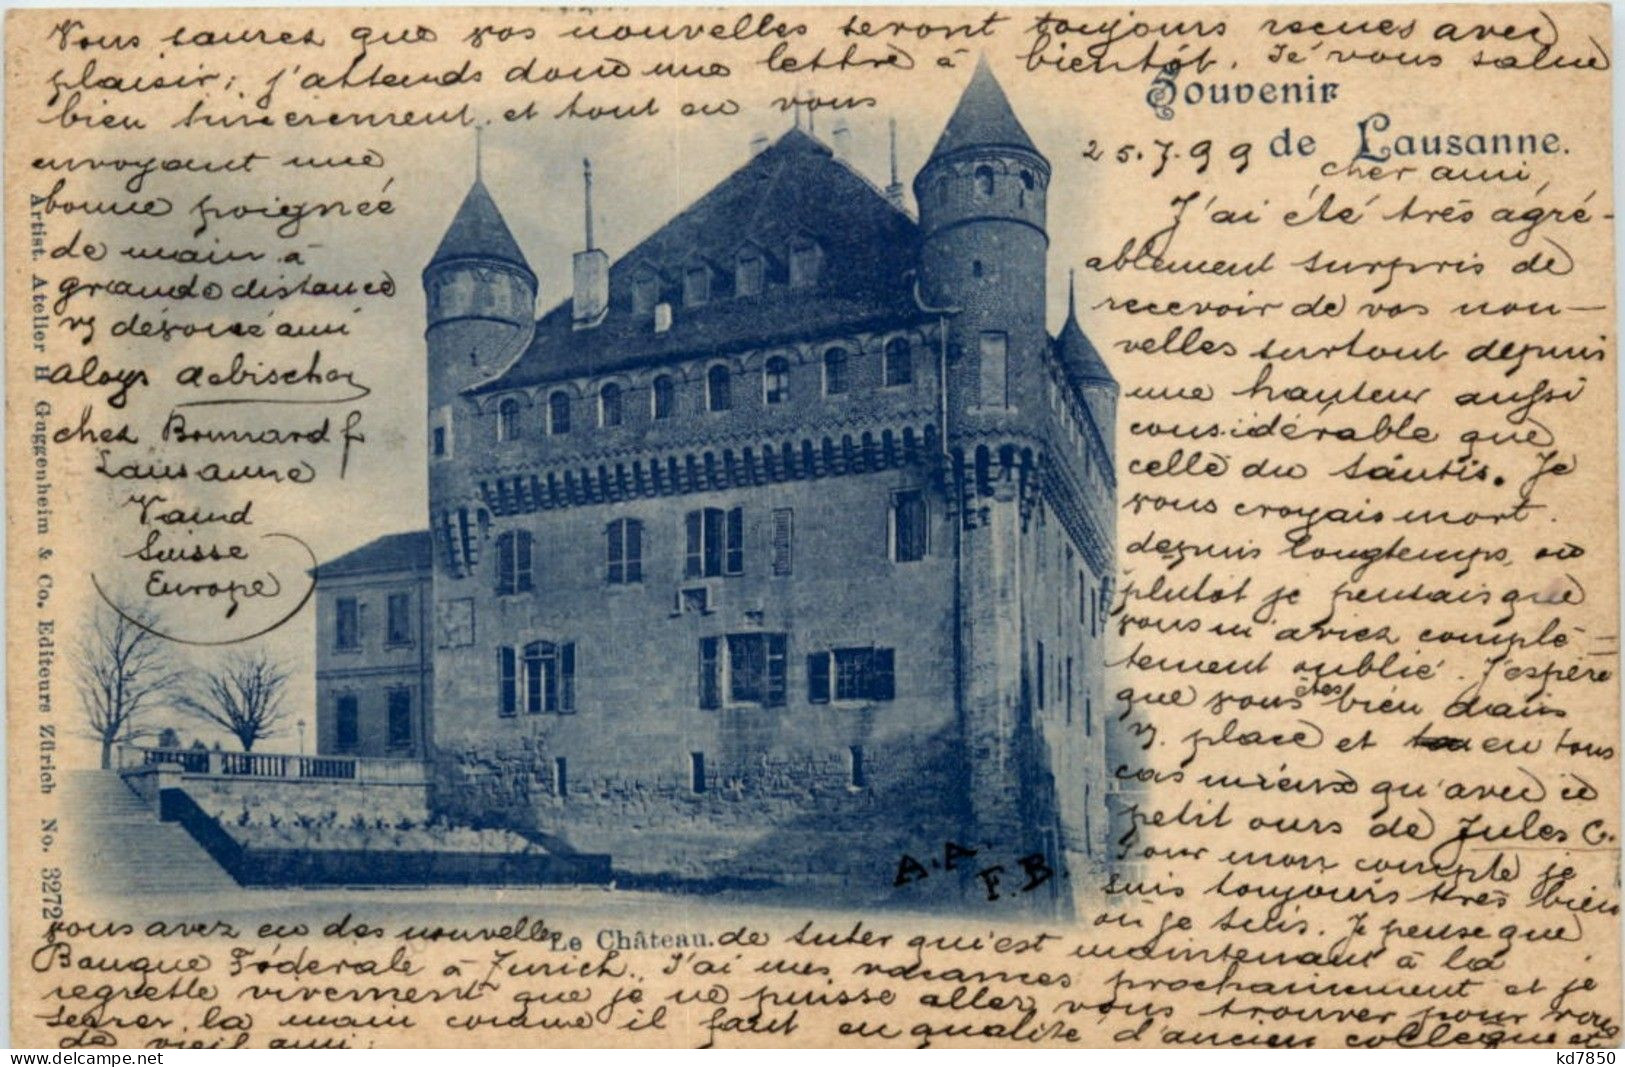 Souvenir
de Lausanne.
25.7.99
cher ami,
J'ai été très agré-
ablement surpris de
recevoir de vos nou-
velles surtout depuis
une hauteur aussi
considérable que
celle du Säntis. Je
vous croyais mort
depuis longtemps, ou
plutôt je pensais que
vous m'aviez complè-
tement oublié. J'espère
que vous êtes bien dans
v. place et en tous
cas mieux qu'avec ce
petit ours de Jules C.
Pour mon compte je
suis toujours très bien
où je suis. Je pense que
vous avez eu des nouvelles de Suter qui est maintenant à la
Banque Féderale à Zurich. J'ai mes vacances prochainement et je
regrette vivement que je ne puisse aller vous trouver pour vous
serrer la main comme il faut en qualité d'ancien collègue et
de vieil ami.
Vous saurez que vos nouvelles seront toujours recues avec
plaisir; j'attends donc une lettre à bientôt. Je vous salue
bien sincèrement et tout en vous
envoyant une
bonne poignée
de main à
grande distance
v/ dévoué ami
Aloys Aebischer
chez Bonnard f
Lausanne
Vaud
Suisse
Europe
A.A.
F.B.
Le Château.
Artist. Atelier H Guggenheim & Co. Editeurs Zürich No. 3272
kd7850